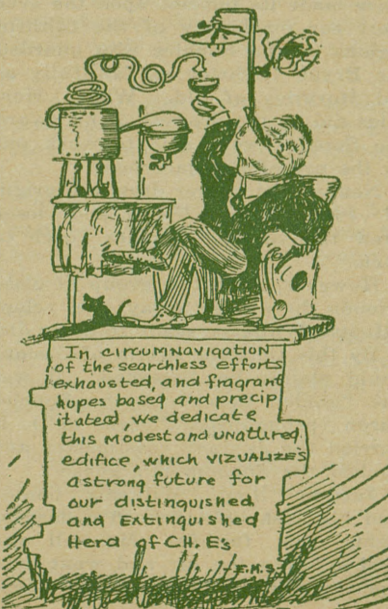 In CIRCUMNAVIGATION
of the searchless efforts
exhausted, and fragrant
hopes based and precip
itated, we dedicate
this Modest and unattired
edifice, which VIZUALIZE'S
a strong future for
our distinguished
and Extinguished
Herd of CH. E's
F.M.S.